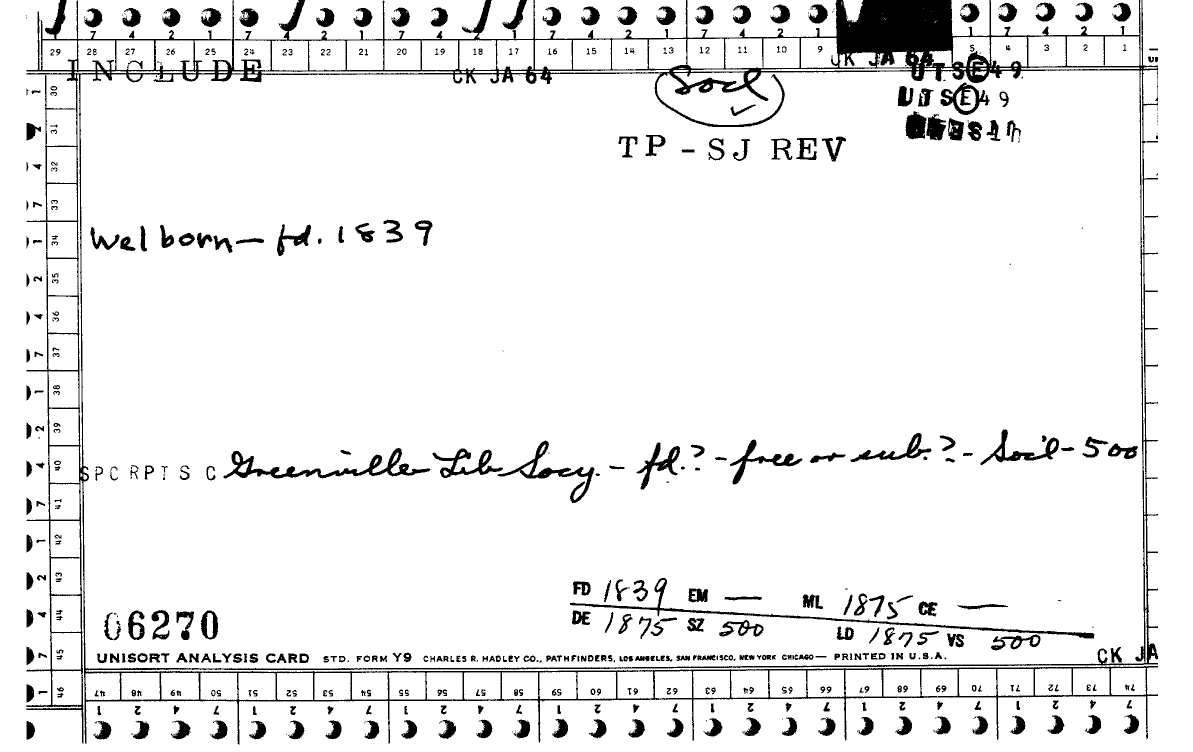 7 4 2 1 7 4 2 1 7 4 2 1 7 4 2 1 7 4 2 1 1 7 4 2 1
29 28 27 26 25 24 23 22 21 20 19 18 17 16 15 14 13 12 11 10 9 5 4 3 2 1
INCLUDE CK JA 64 CK JA 64 UTSE49
Socl UTSE49
TP - SJ REV
Welborn — fd. 1839
SPC RPT S C Greenville Lib Socy. - fd.? - free or sub.? - Soc'l - 500
FD 1839 EM — ML 1875 CE —
DE 1875 SZ 500 LD 1875 VS 500
06270
UNISORT ANALYSIS CARD STD. FORM Y9 CHARLES R. HADLEY CO., PATHFINDERS, LOS ANGELES, SAN FRANCISCO, NEW YORK CHICAGO — PRINTED IN U.S.A. CK JA
30
31
32
33
34
35
36
37
38
39
40
41
42
43
44
45
46 47 48 49 50 51 52 53 54 55 56 57 58 59 60 61 62 63 64 65 66 67 68 69 70 71 72 73 74
1 2 4 7 1 2 4 7 1 2 4 7 1 2 4 7 1 2 4 7 1 2 4 7 1 2 4 7